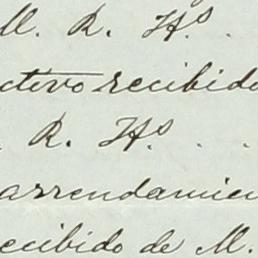 M. R. Hs. .
ctivo recibido
. R. Hs. . .
arrendamien
ecibido de M.